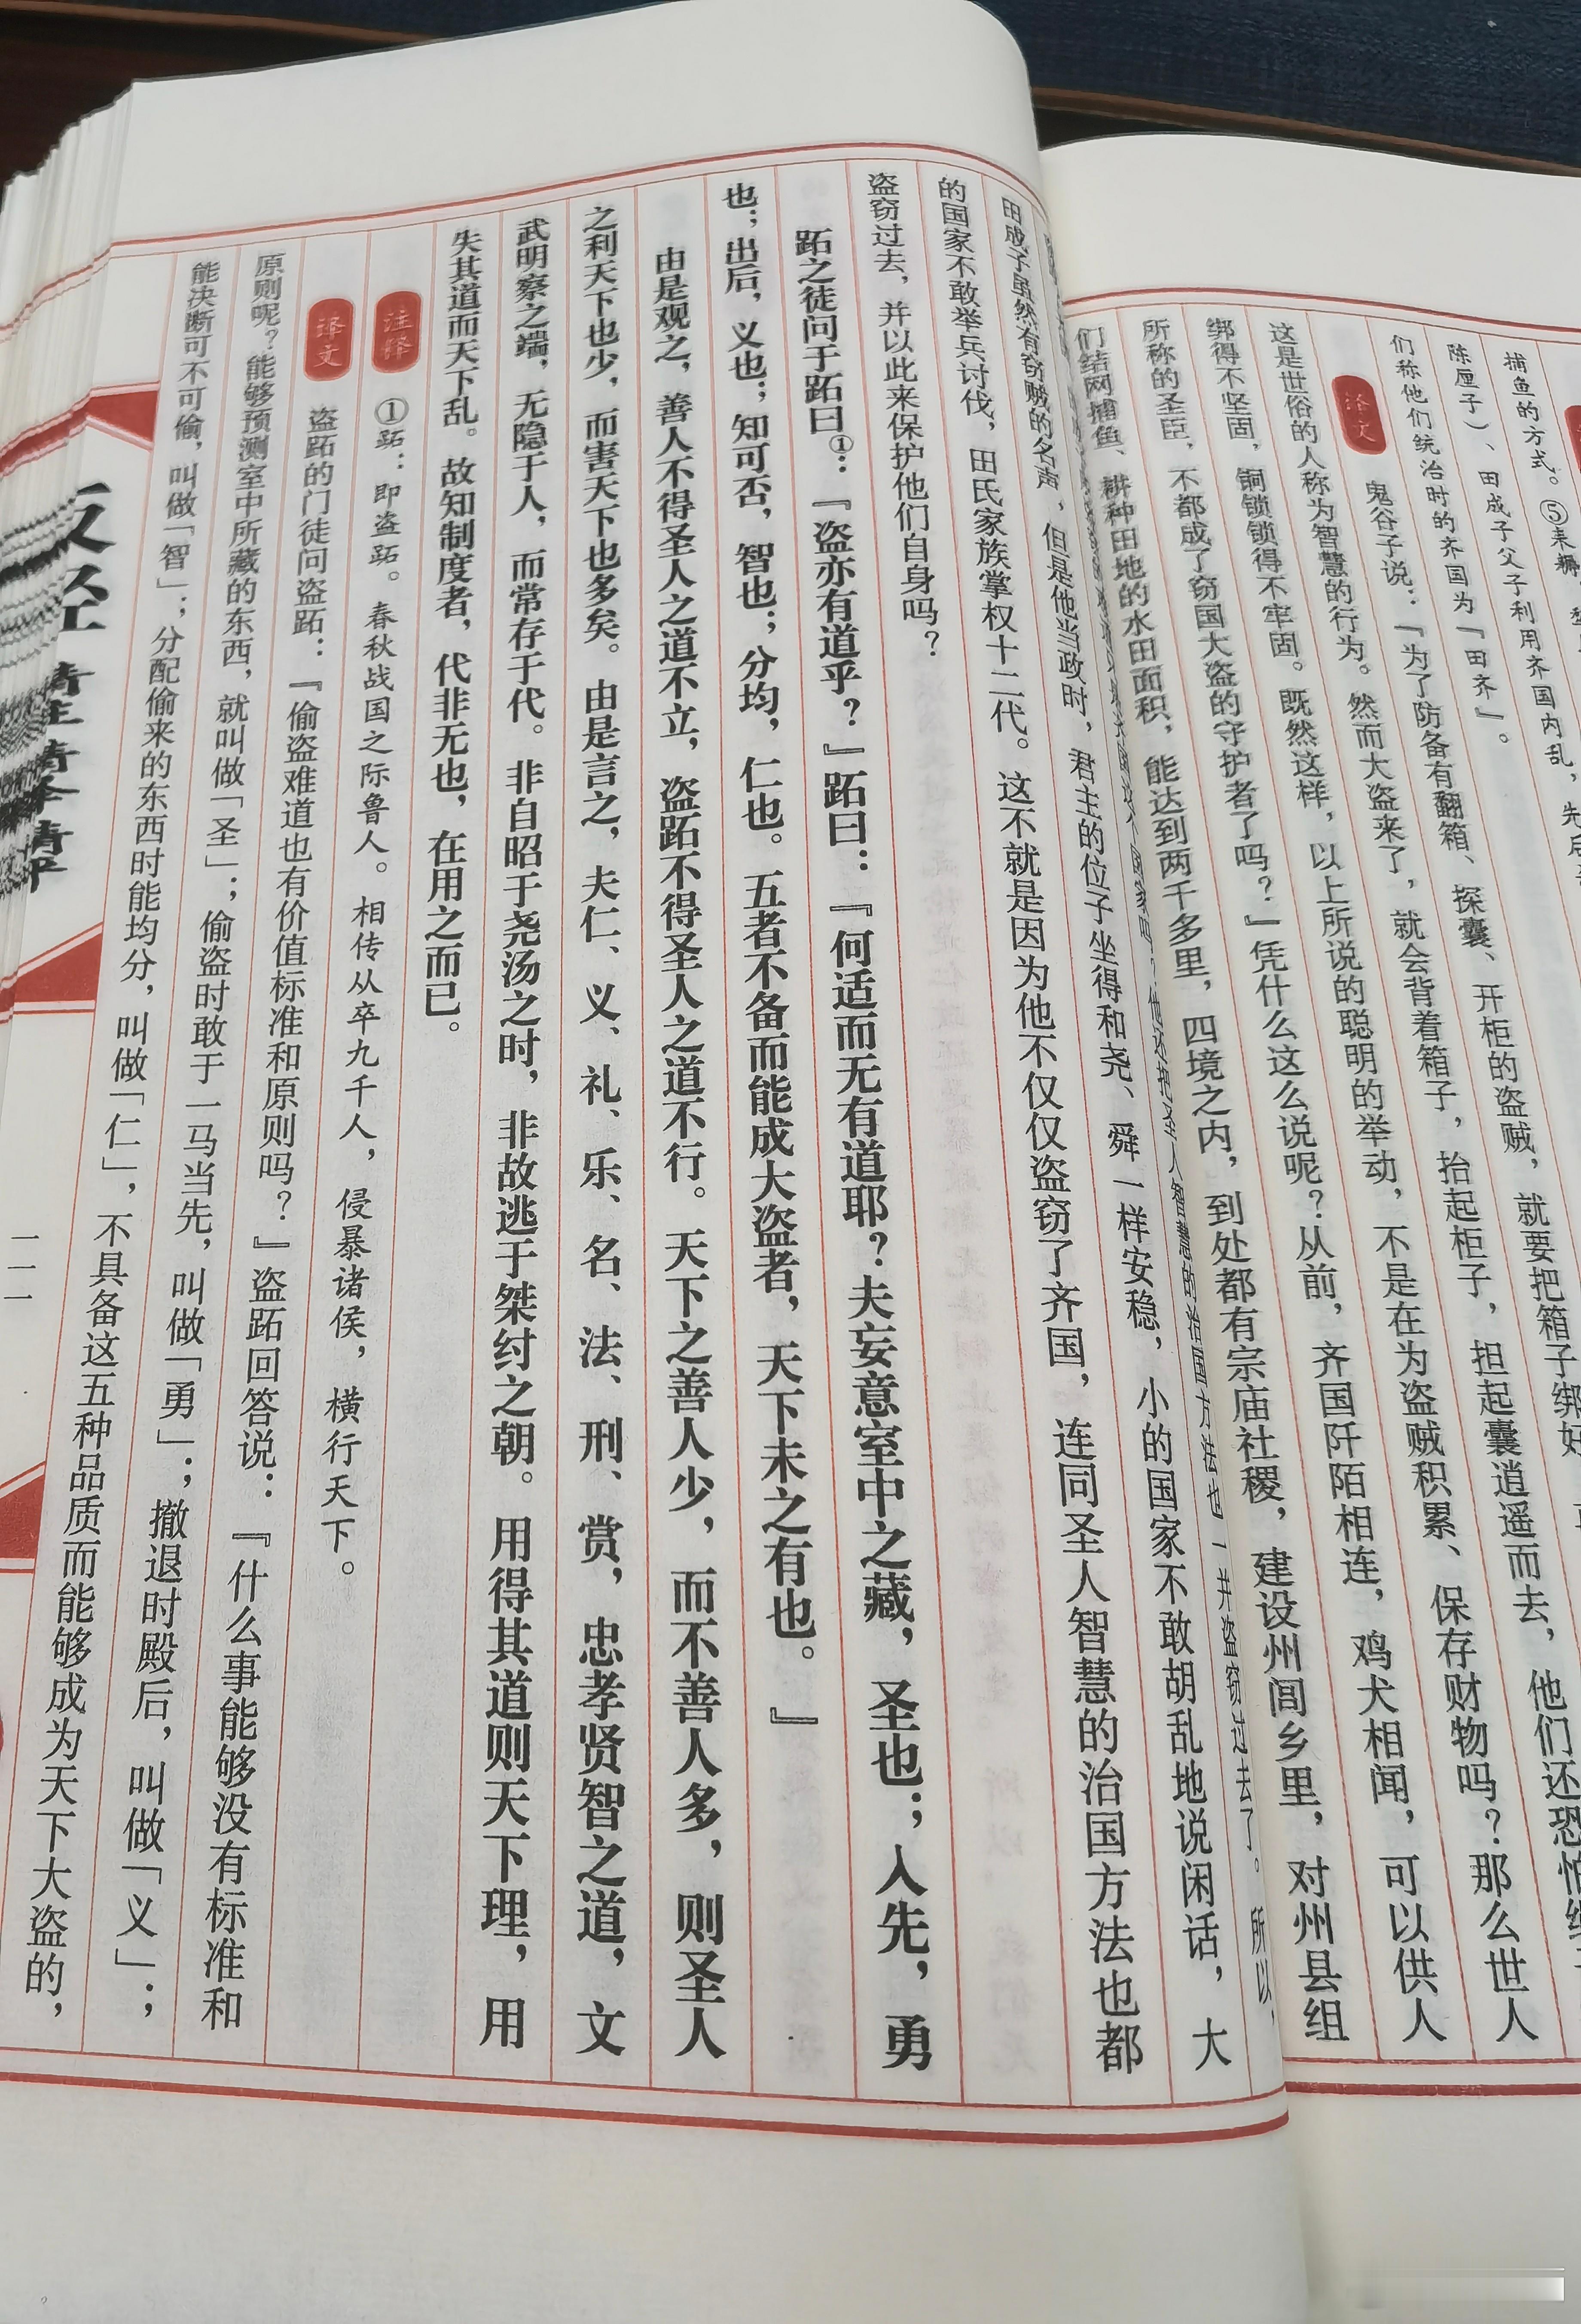 捕鱼的方式。⑤耒耨
陈厘子）、田成子父子利用齐国内乱，先后
们称他们统治时的齐国为「田齐」。
译文
鬼谷子说：『为了防备有翻箱、探囊、开柜的盗贼，就要把箱子绑好
这是世俗的人称为智慧的行为。然而大盗来了，就会背着箱子，抬起柜子，担起囊逍遥而去，他们还恐怕
绑得不坚固，铜锁锁得不牢固。既然这样，以上所说的聪明的举动，不是在为盗贼积累、保存财物吗？那么世人
所称的圣臣，不都成了窃国大盗的守护者了吗？』凭什么这么说呢？从前，齐国阡陌相连，鸡犬相闻，可以供人
们结网捕鱼、耕种田地的水田面积，能达到两千多里，四境之内，到处都有宗庙社稷，建设州闾乡里，对州县组
他还把圣人智慧的治国方法也一并盗窃过去了。所以，
田成子虽然有窃贼的名声，但是他当政时，君主的位子坐得和尧、舜一样安稳，小的国家不敢胡乱地说闲话，大
的国家不敢举兵讨伐，田氏家族掌权十二代。这不就是因为他不仅仅盗窃了齐国，连同圣人智慧的治国方法也都
盗窃过去，并以此来保护他们自身吗？
跖之徒问于跖曰①：『盗亦有道乎？』跖曰：『何适而无有道耶？夫妄意室中之藏，圣也；人先，勇
也；出后，义也；知可否，智也；分均，仁也。五者不备而能成大盗者，天下未之有也。』
由是观之，善人不得圣人之道不立，盗跖不得圣人之道不行。天下之善人少，而不善人多，则圣人
之利天下也少，而害天下也多矣。由是言之，夫仁、义、礼、乐、名、法、刑、赏，忠孝贤智之道，文
武明察之端，无隐于人，而常存于代。非自昭于尧汤之时，非故逃于桀纣之朝。用得其道则天下理，用
失其道而天下乱。故知制度者，代非无也，在用之而已。
注释
①跖：即盗跖。春秋战国之际鲁人。相传从卒九千人，侵暴诸侯，横行天下。
译文
盗跖的门徒问盗跖：『偷盗难道也有价值标准和原则吗？』盗跖回答说：『什么事能够没有标准和
原则呢？能够预测室中所藏的东西，就叫做「圣」；偷盗时敢于一马当先，叫做「勇」；撤退时殿后，叫做「义」；
能决断可不可偷，叫做「智」；分配偷来的东西时能均分，叫做「仁」，不具备这五种品质而能够成为天下大盗的，
一一一